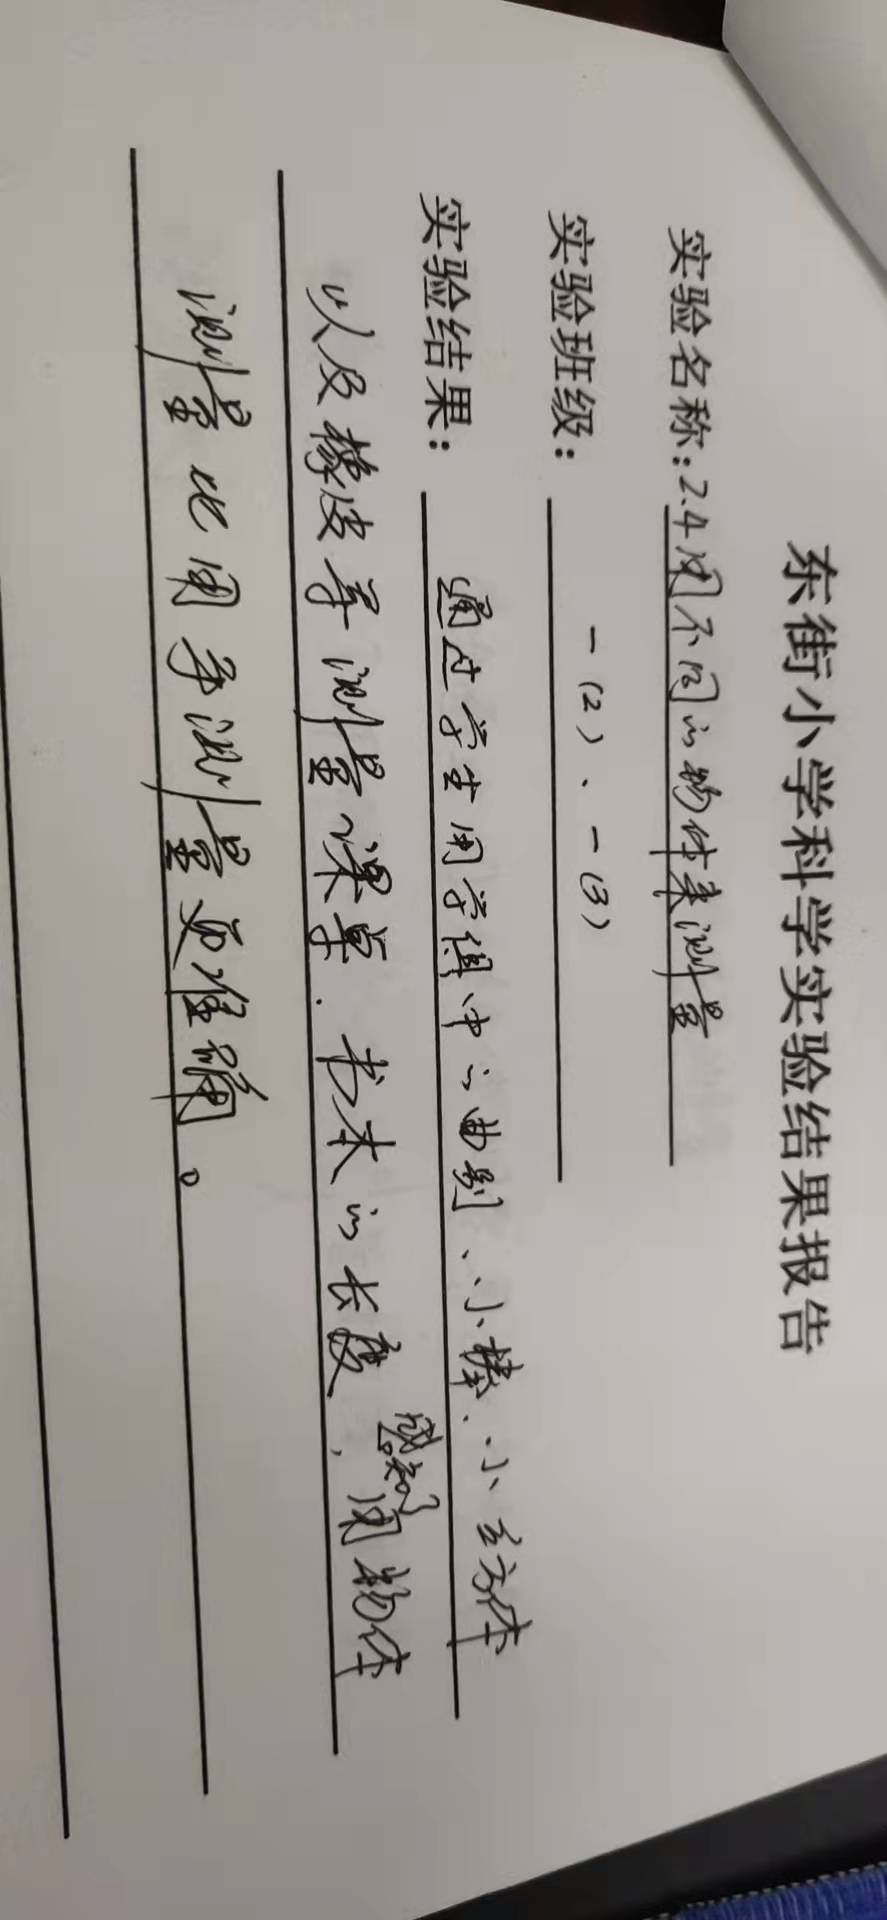 东街小学科学实验结果报告
实验名称：2.4用不同的物体来测量
实验班级：一(2)、一(3)
实验结果：通过学生用学具中的曲别、小棒、小立方体
以及橡皮等测量课桌、书本的长度，感知用物体
测量比用手测量更准确。